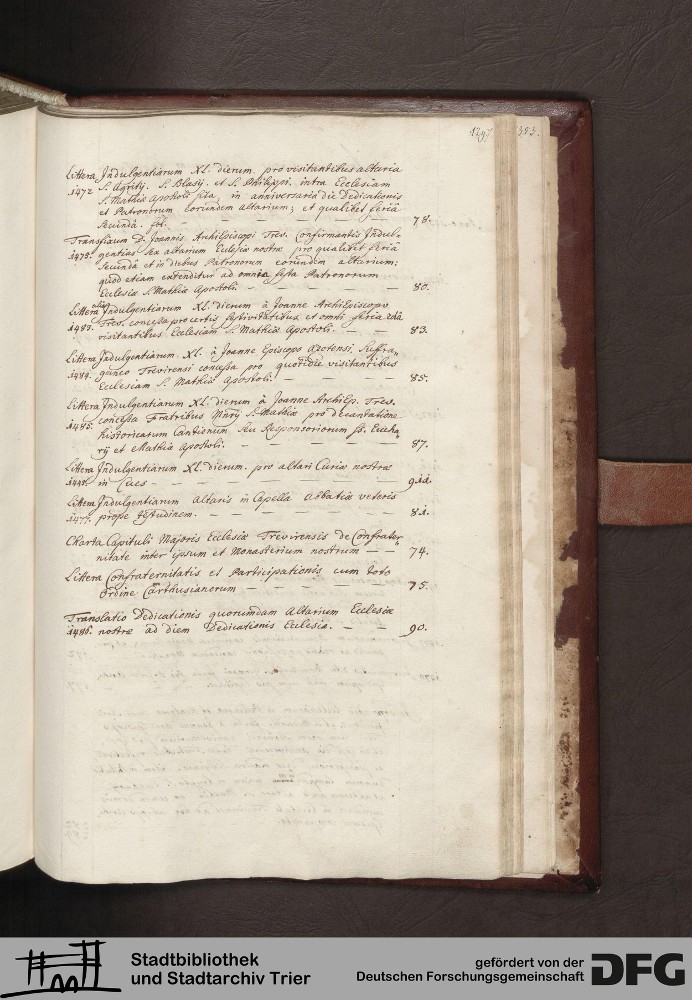 1297 383.
Littera Indulgentiarum XL. dierum. pro visitantibus altaria
1472 S. Agritij. S. Blasij. et S. Philippi. intra Ecclesiam
S. Mathiæ Apostoli sita, in anniversaria die Dedicationis
et Patronorum eorundem altarium; et qualibet feriâ
secundâ. — — — — — — 78.
Transfixum D. Joannis Archiepiscopi Trev. Confirmantis Indul-
1473. gentias sex altarium Ecclesiæ nostræ pro qualibet feriâ
secundâ et in diebus Patronorum eorundem altarium;
quod etiam extenditur ad omnia festa Patronorum
Ecclesiæ S. Mathiæ Apostoli. — — — — 80.
Littera alia Indulgentiarum XL. dierum à Joanne Archiepiscopo
1483. Trev. concessa pro certis festivitatibus et omni feria 2dâ
visitantibus Ecclesiam S. Mathiæ Apostoli. — — 83.
Littera Indulgentiarum. XL. à Joanne Episcopo Azotensi, Suffra-
1484. ganeo Trevirensi concessa pro quotidie visitantibus
Ecclesiam S. Mathiæ Apostoli. — — — — 85.
Littera Indulgentiarum XL. dierum à Joanne Archiep. Trev.
1485. concessa Fratribus S. Mathiæ pro decantatione
historicarum Cantionum seu Responsoriorum SS. Eucha-
rij et Mathiæ Apostoli. — — — — — 87.
Littera Indulgentiarum XL. dierum. pro altari Curiæ nostræ
in Cues — — — — — — — 911.
Littera Indulgentiarum Altaris in Capella Abbatiæ veteris
1477. prope testudinem. — — — — — — 81.
Charta Capituli Majoris Ecclesiæ Trevirensis de Confrater-
nitate inter ipsum et Monasterium nostrum — — 74.
Littera Confraternitatis et Participationis cum toto
Ordine Carthusianorum — — — — — 75.
Translatio Dedicationis quorumdam Altarium Ecclesiæ
1486. nostræ ad diem Dedicationis Ecclesiæ. — — 90.
Stadtbibliothek
und Stadtarchiv Trier
gefördert von der
Deutschen Forschungsgemeinschaft
DFG